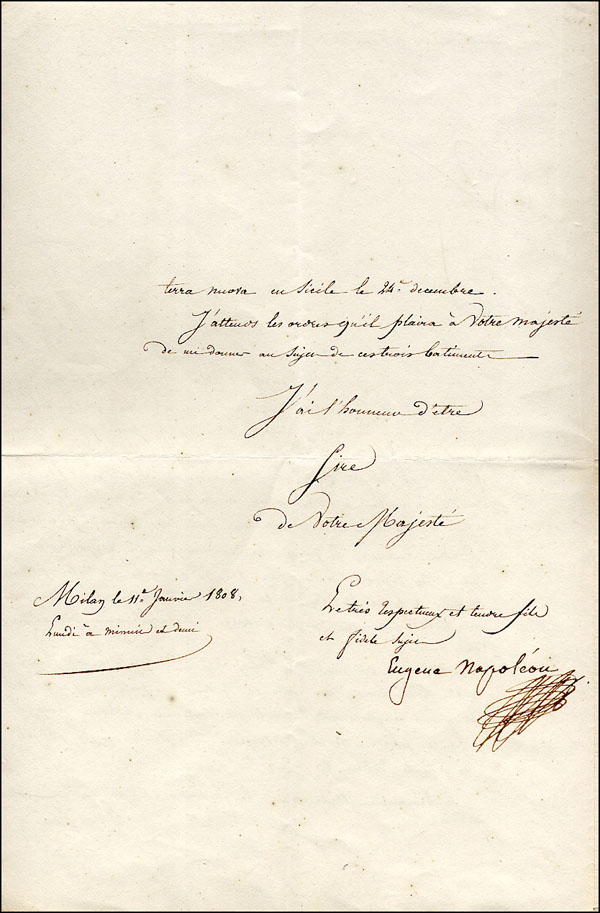 terra nuova en Sicile le 24.e decembre.
J'attends les ordres qu'il plaira à Votre majesté
de me donner au sujet de ces trois batiments
J'ai l'honneur d'être
Sire
de Votre Majesté
Milan le 11.e Janvier 1808,
Lundi à minuit et demi
Le très respectueux et tendre fils
et fidele sujet
Eugene Napoléon